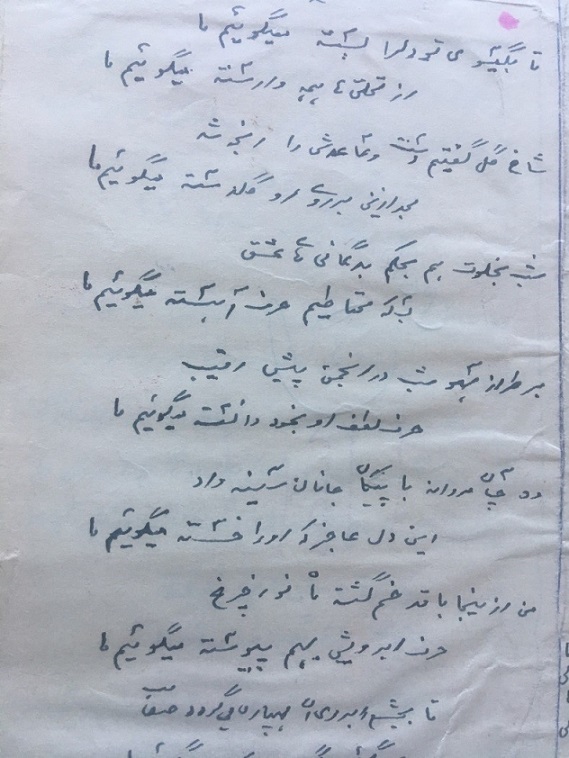 تا بگیسوی تو دلرا بسته میگوئیم ما
از تعلق ها همه وارسته میگوئیم ما
شاخ گل گفتیم دست و ساعدش را رنجه شد
بعد ازین بر روی او گلدسته میگوئیم ما
شب بخلوت هم بحکم بدگمانی های عشق
بسکه محتاطیم حرف آهسته میگوئیم ما
بر طراز سهو شب در انجمن پیش رقیب
حرف لطف او بخود دانسته میگوئیم ما
مردانه با پیکان جانان سینه داد
این دل عاجز که او را خسته میگوئیم ما
من از ینجا با قد خم گشته ماه نو ز چرخ
حرف ابرویش بهم پیوسته میگوئیم ما
تا بچشم ابروی آن میگردد